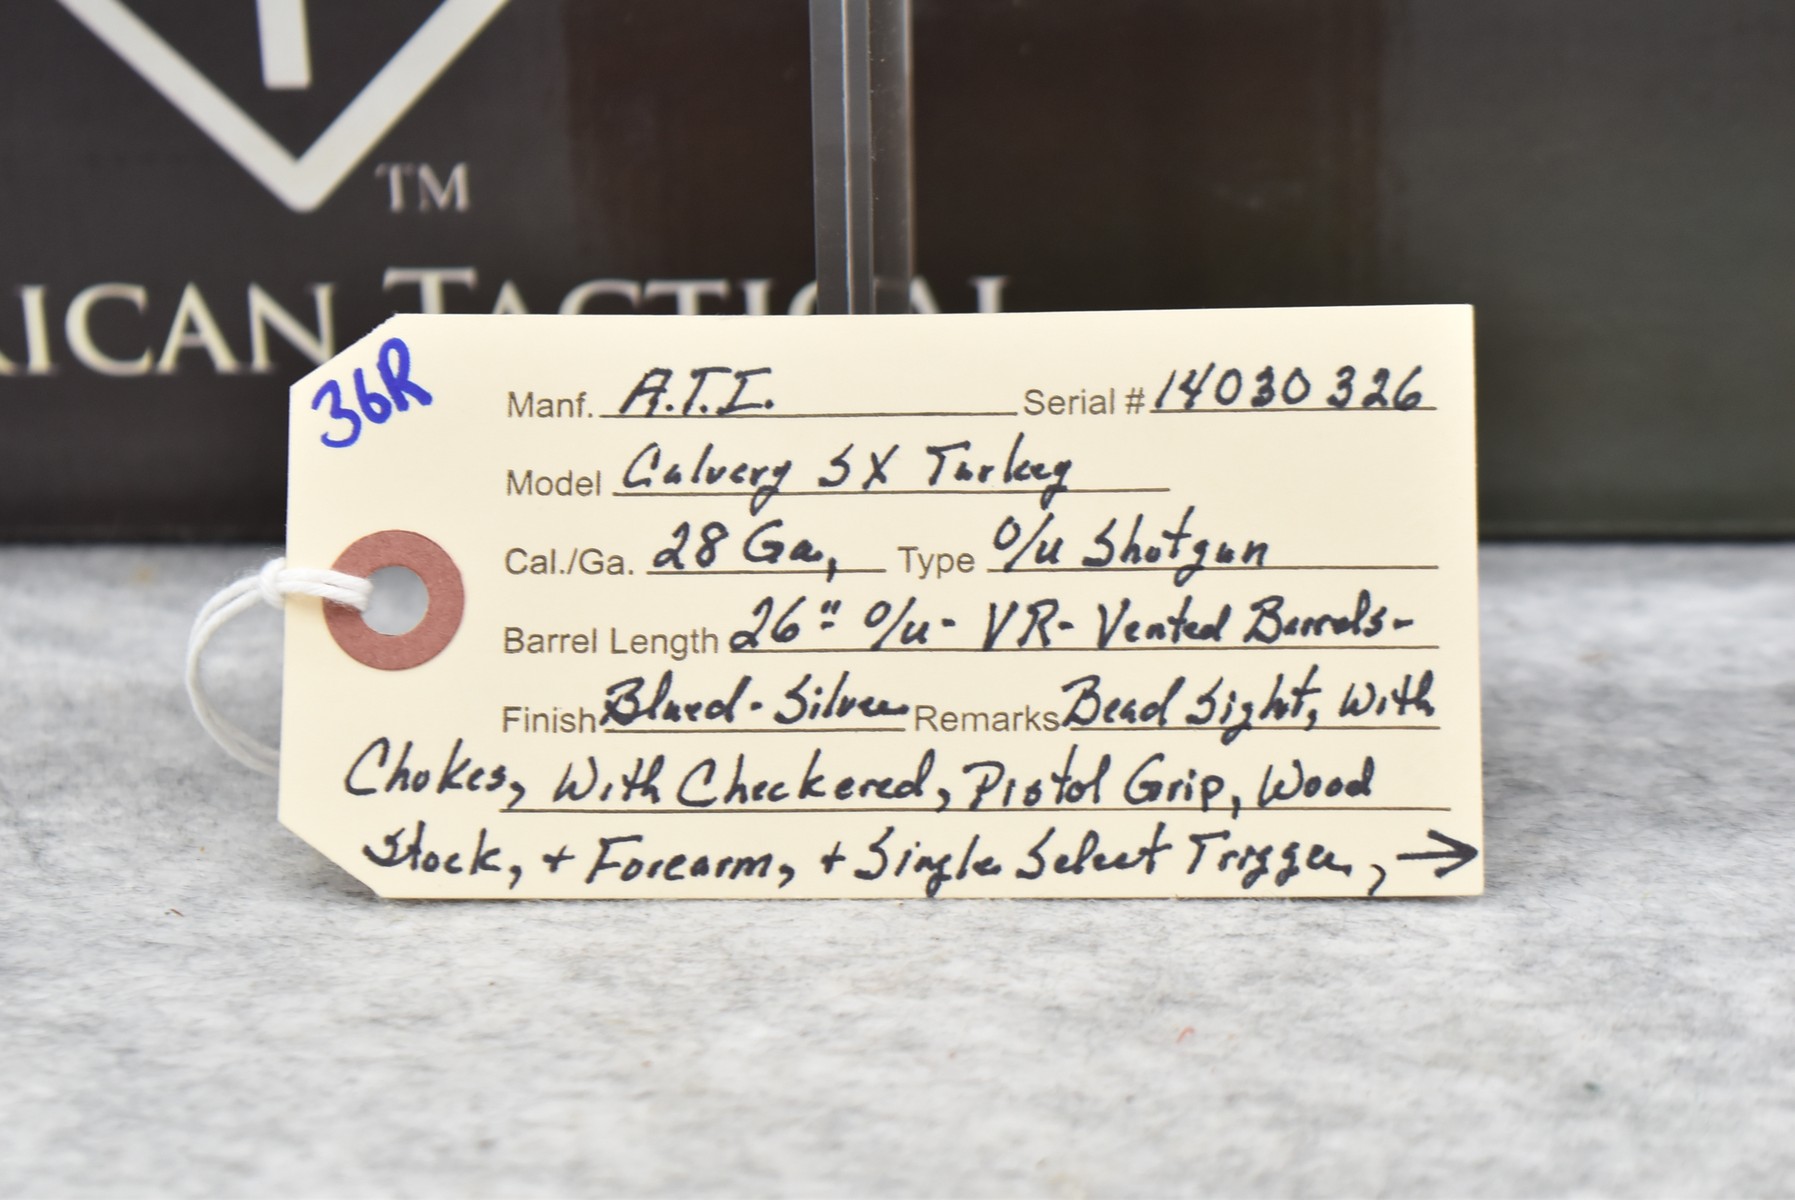 TM
RICAN TACTICAL
36R
Manf. A.T.I. Serial # 14030326
Model Calvery SX Turkey
Cal./Ga. 28 Ga, Type O/u Shotgun
Barrel Length 26" O/u - VR - Vented Barrels -
Finish Blued - Silver Remarks Bead Sight, With
Chokes, With Checkered, Pistol Grip, Wood
Stock, + Forearm, + Single Select Trigger, →